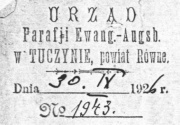 URZĄD
Parafji Ewang.-Augsb.
w TUCZYNIE, powiat Równe.
Dnia 30. IV 1926 r.
No 1943.